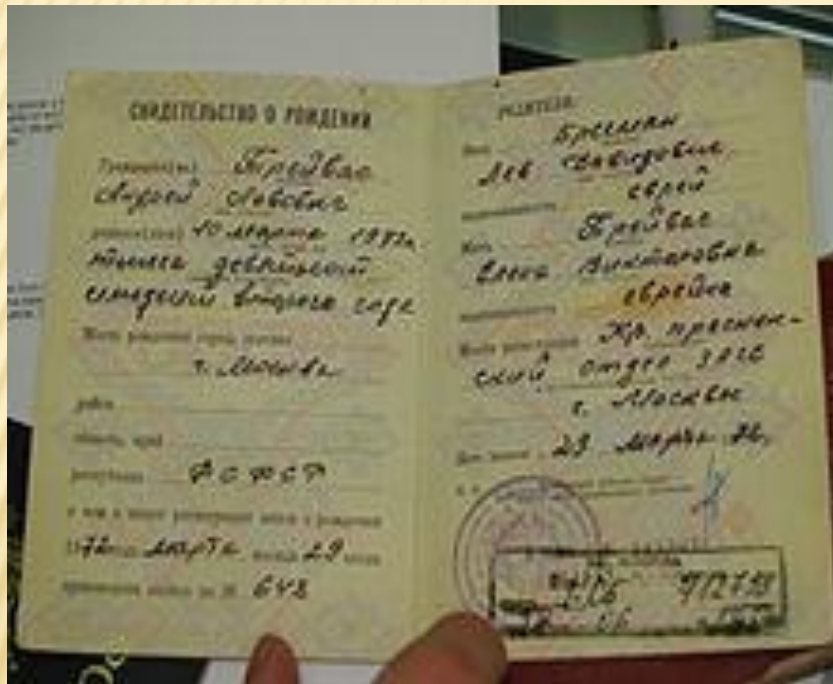 СВИДЕТЕЛЬСТВО О РОЖДЕНИИ
Гражданин(ка) Трейвас
Андрей Львович
родился(лась) 10 марта 1972г.
тысяча девятьсот
семьдесят второго года
Место рождения город, селение
г. Москва
район
область, край
республика РСФСР
о чем в книге регистрации актов о рождении
1972 года марта месяца 29 числа
произведена запись за № 648
РОДИТЕЛИ:
Отец Брегман
Лев Давидович
еврей
Мать Трейвас
Елена Викторовна
еврейка
Место регистрации Кр. преснен-
ский отдел ЗАГС
г. Москвы
29 марта